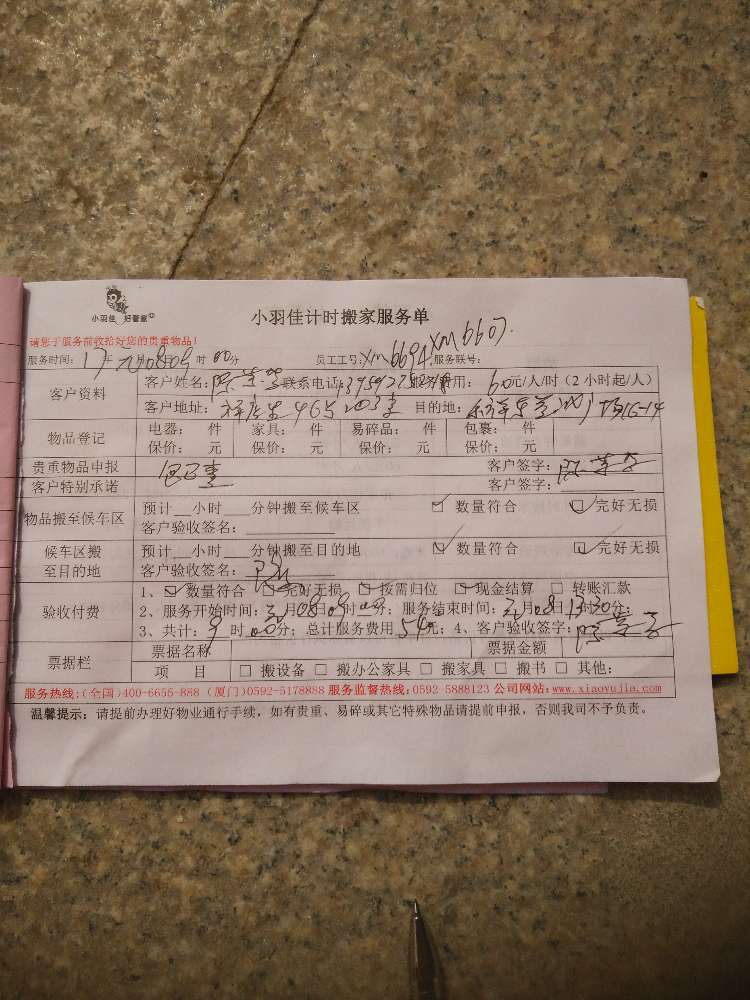 小羽佳 好管家
小羽佳计时搬家服务单
请您于服务前收拾好您的贵重物品！
服务时间：17年 08 09时00分 员工工号：xm6694 xm6607. 服务联号：
客户资料 客户姓名： 联系电话： 服务费用：60元/人/时（2小时起/人）
客户地址： 目的地： 16-14
物品登记 电器： 件 家具： 件 易碎品： 件 包裹： 件
保价： 元 保价： 元 保价： 元 保价： 元
贵重物品申报 客户签字：
客户特别承诺 客户签字：
物品搬至候车区 预计__小时___分钟搬至候车区 ☑ 数量符合 ☑ 完好无损
客户验收签名：
候车区搬至目的地 预计__小时___分钟搬至目的地 ☑ 数量符合 ☑ 完好无损
客户验收签名：
验收付费 1、☑ 数量符合 ☑ 完好无损 ☑ 按需归位 ☑ 现金结算 □ 转账汇款
2、服务开始时间： 月08日09时00分；服务结束时间： 月08日13时30分；
3、共计：9时00分；总计服务费用540元；4、客户验收签字：
票据栏 票据名称 票据金额
项 目 □ 搬设备 □ 搬办公家具 □ 搬家具 □ 搬书 □ 其他：
服务热线：(全国)400-6655-888 (厦门)0592-5178888 服务监督热线：0592-5888123 公司网站：www.xiaoyujia.com
温馨提示：请提前办理好物业通行手续，如有贵重、易碎或其它特殊物品请提前申报，否则我司不予负责。